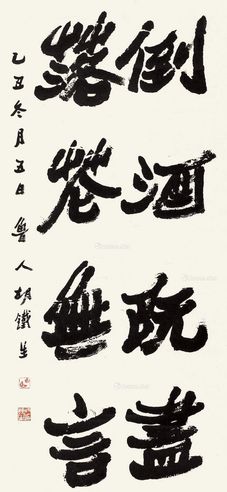 倒酒既盡
落花無言
乙丑冬月五日魯人胡鐵生